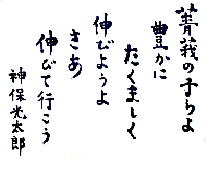 菁莪の子らよ
豊かに
たくましく
伸びようよ
さあ
伸びて行こう
神保光太郎